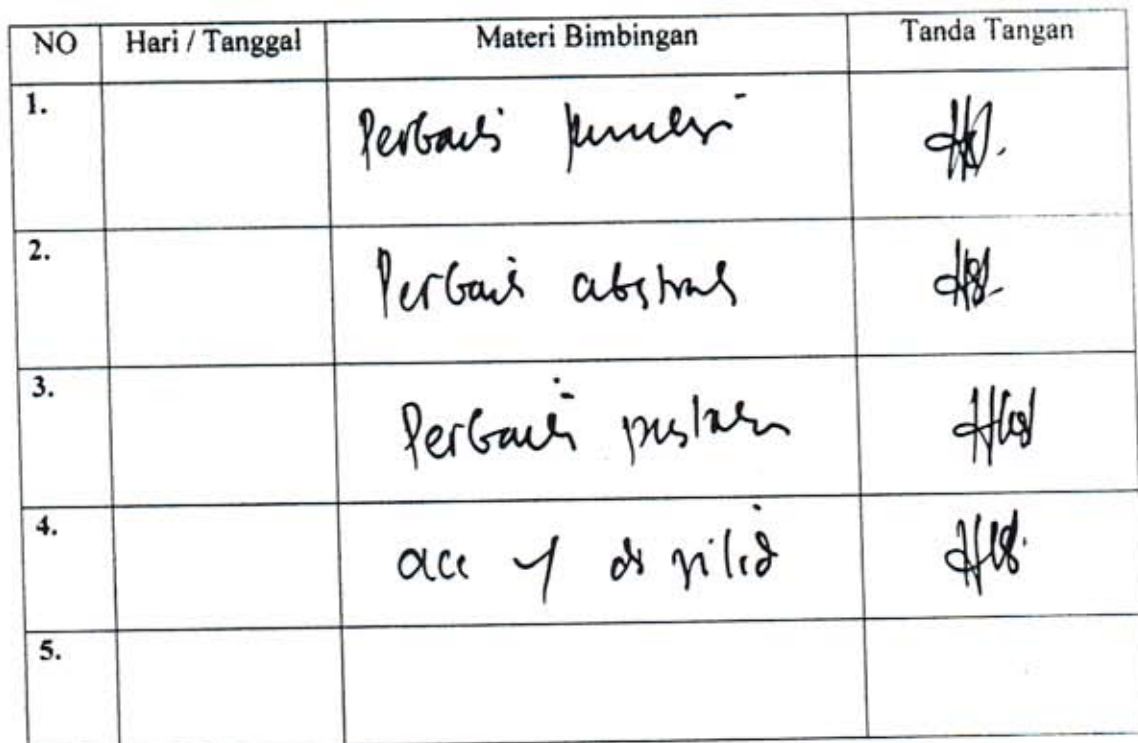 NO Hari / Tanggal Materi Bimbingan Tanda Tangan
1. Perbaiki
2. Perbaiki abstrak
3. Perbaiki pustaka
4. acc y di jilid
5.